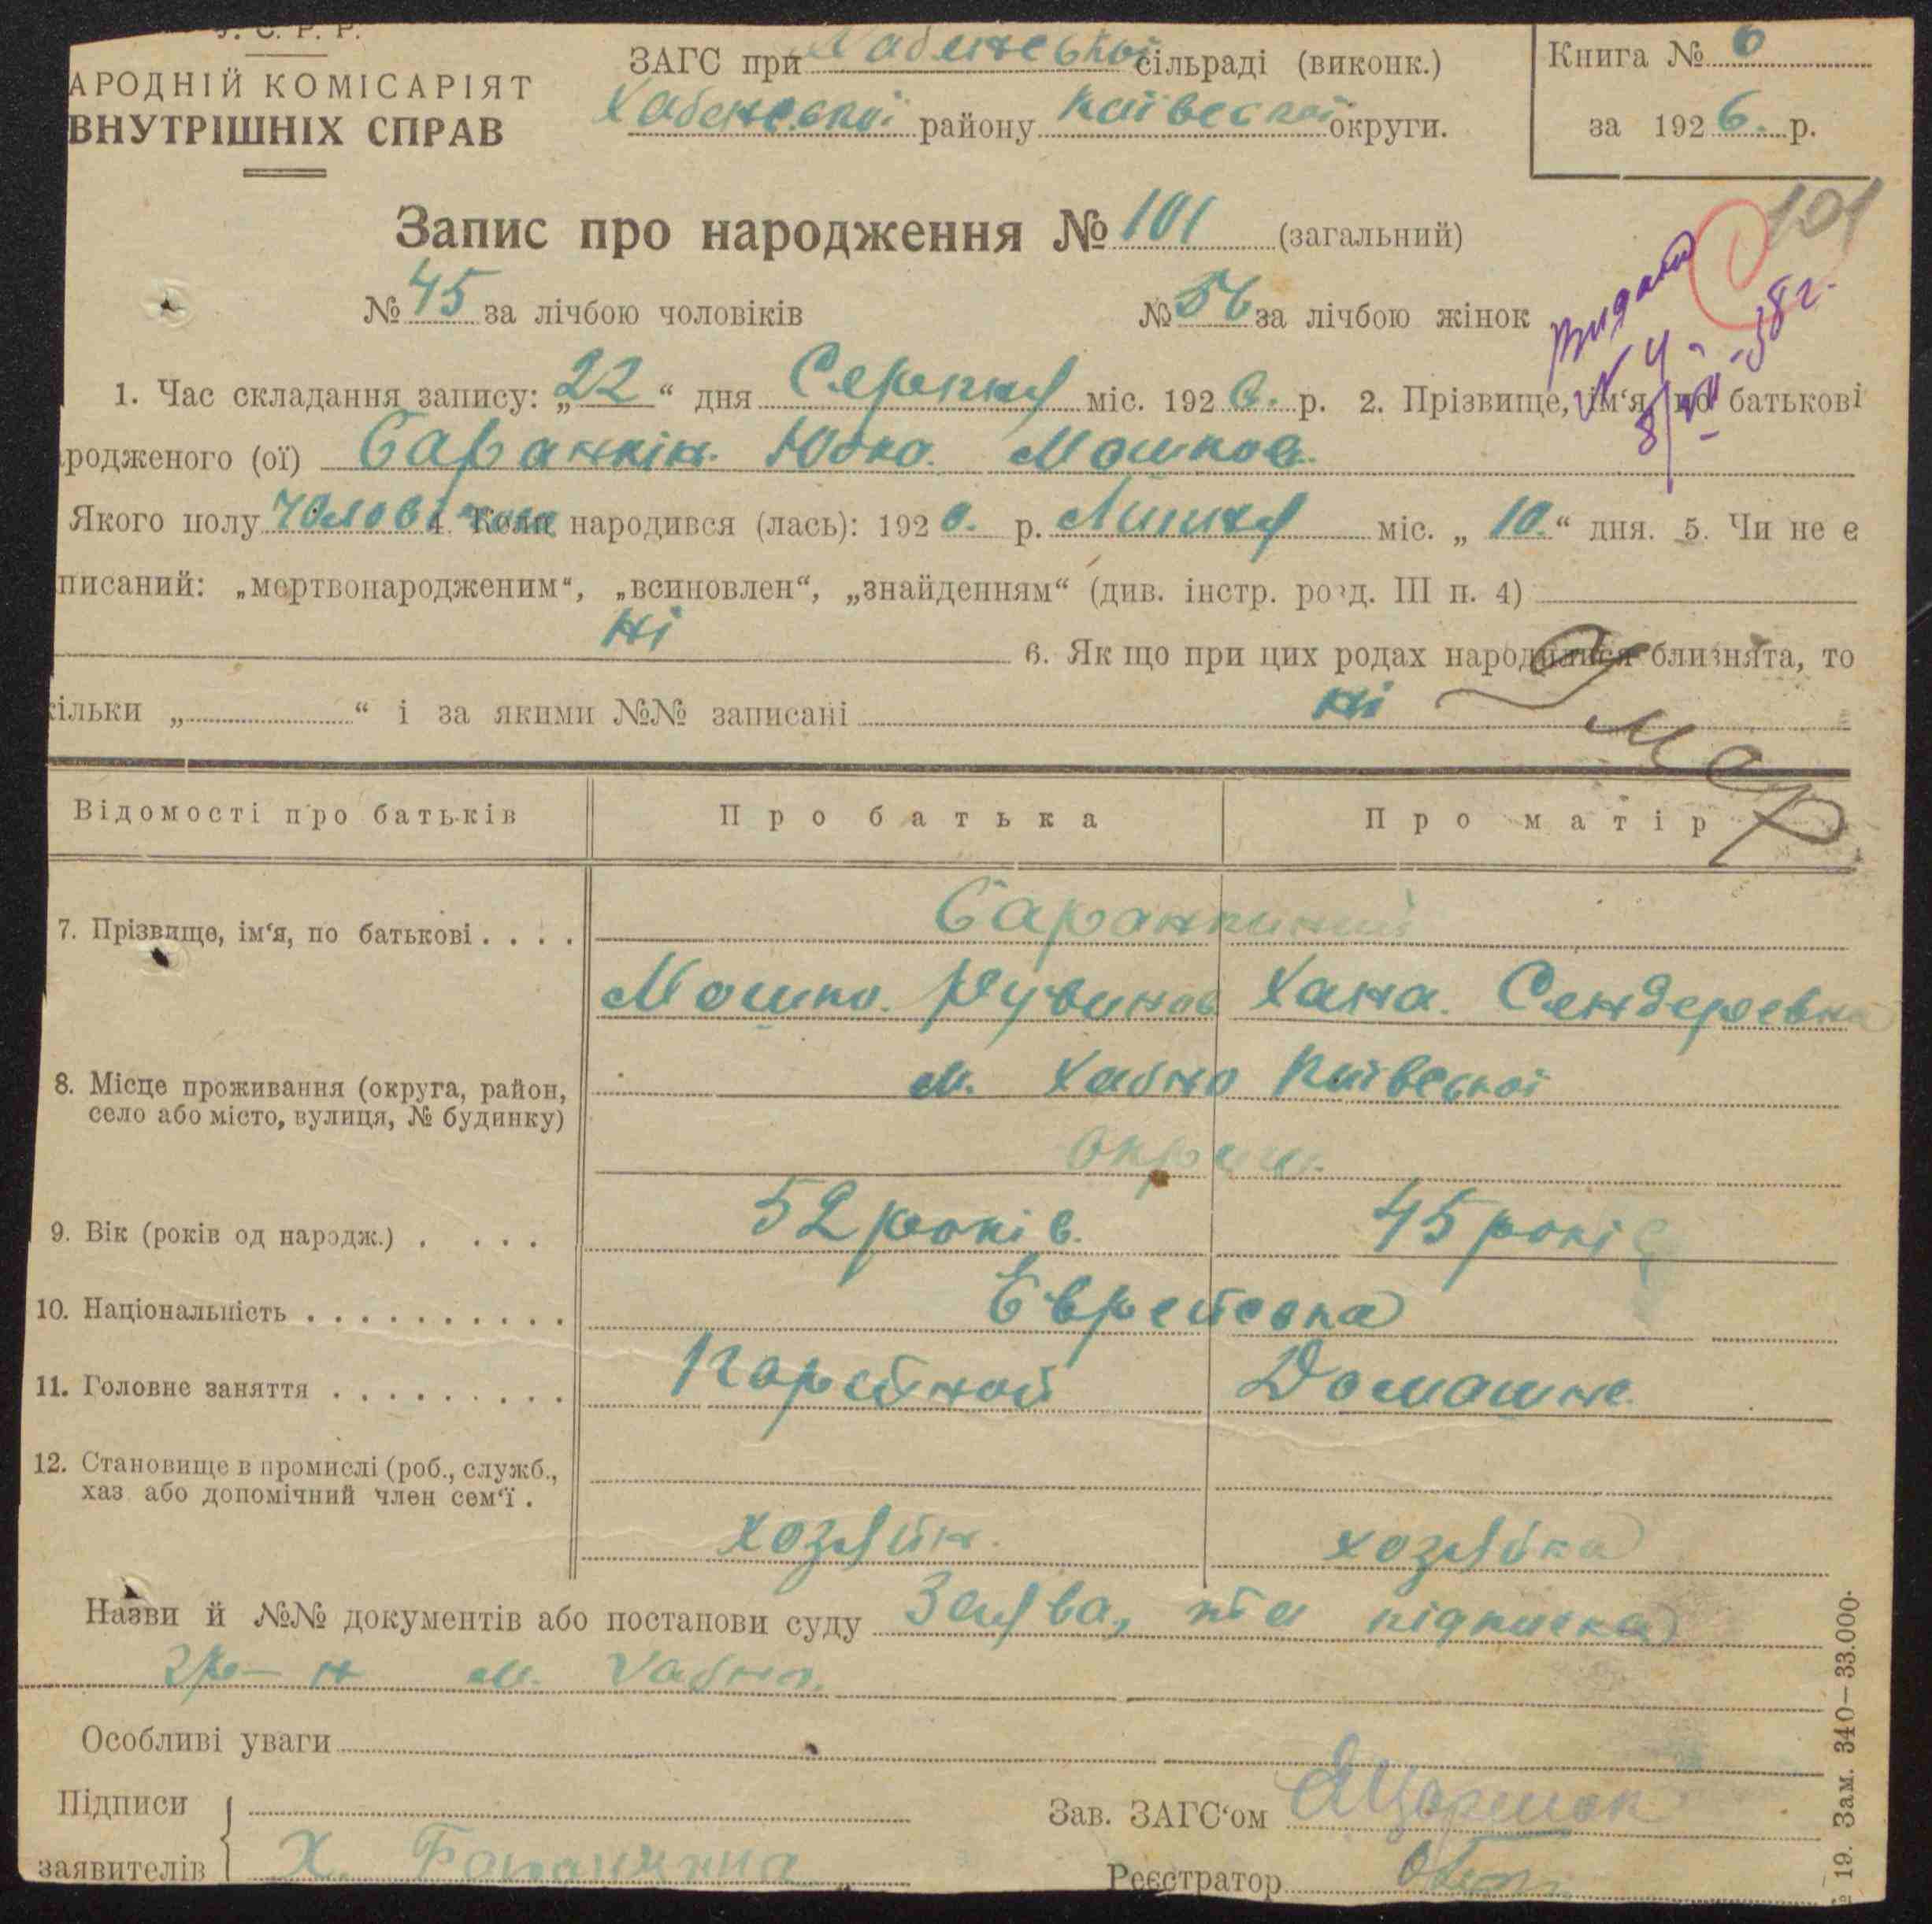 У. С. Р. Р.
АРОДНІЙ КОМІСАРІЯТ
ВНУТРІШНІХ СПРАВ
ЗАГС при Хабенській сільраді (виконк.)
Хабенської району Київеської округи.
Книга № 6
за 1926. р.
101
Запис про народження № 101 (загальний)
№ 45 за лічбою чоловіків № 56 за лічбою жінок
1. Час складання запису: „22“ дня Серпня міс. 1926. р. 2. Прізвище, ім‘я, по батькові
ародженого (ої) Саранкін. Юдко. Мошков.
Якого полу чоловічого 4. Коли народився (лась): 1926. р. Липня міс. „10.“ дня. 5. Чи не є
писаний: „мертвонародженим“, „всиновлен“, „знайденням“ (див. інстр. розд. III п. 4)
ні
6. Як що при цих родах народилися близнята, то
кільки „ “ і за якими №№ записані ні
Відомості про батьків Про батька Про матір
7. Прізвище, ім‘я, по батькові . . . . Саранкин
Мошко. Рувинов Хана. Сендеревна
8. Місце проживання (округа, район,
село або місто, вулиця, № будинку)
м. Хабно Київеської
округи.
9. Вік (років од народж.) . . . . 52 років. 45 років
10. Національність . . . . . . . . . . Еврейська
11. Головне заняття . . . . . . . . . Домашне.
12. Становище в промислі (роб., служб.,
хаз. або допомічний член сем‘ї .
хозяин. хозяйка
Назви й №№ документів або постанови суду Заява, та підписка
гр-н м. Хабна.
Особливі уваги
Підписи
заявителів Х.
Зав. ЗАГС‘ом
Реєстратор
19. Зам. 340—33.000.